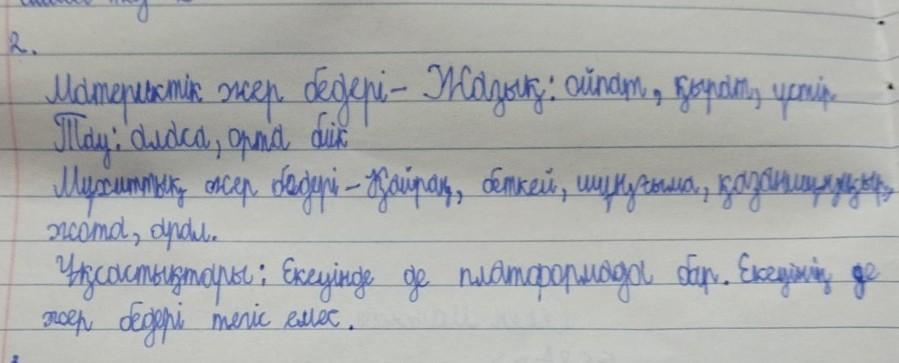 2.
Материктік жер бедері - Жазық: ойпат, қырат, үстірт
Тау: аласа, орта биік
Мұхиттық жер бедері - Қайраң, беткей, шұңғыма, қазаншұңқыр,
жота, арал.
Ұқсастықтары: Екеуінде де платформада бар. Екеуінің де
жер бедері тегіс емес.